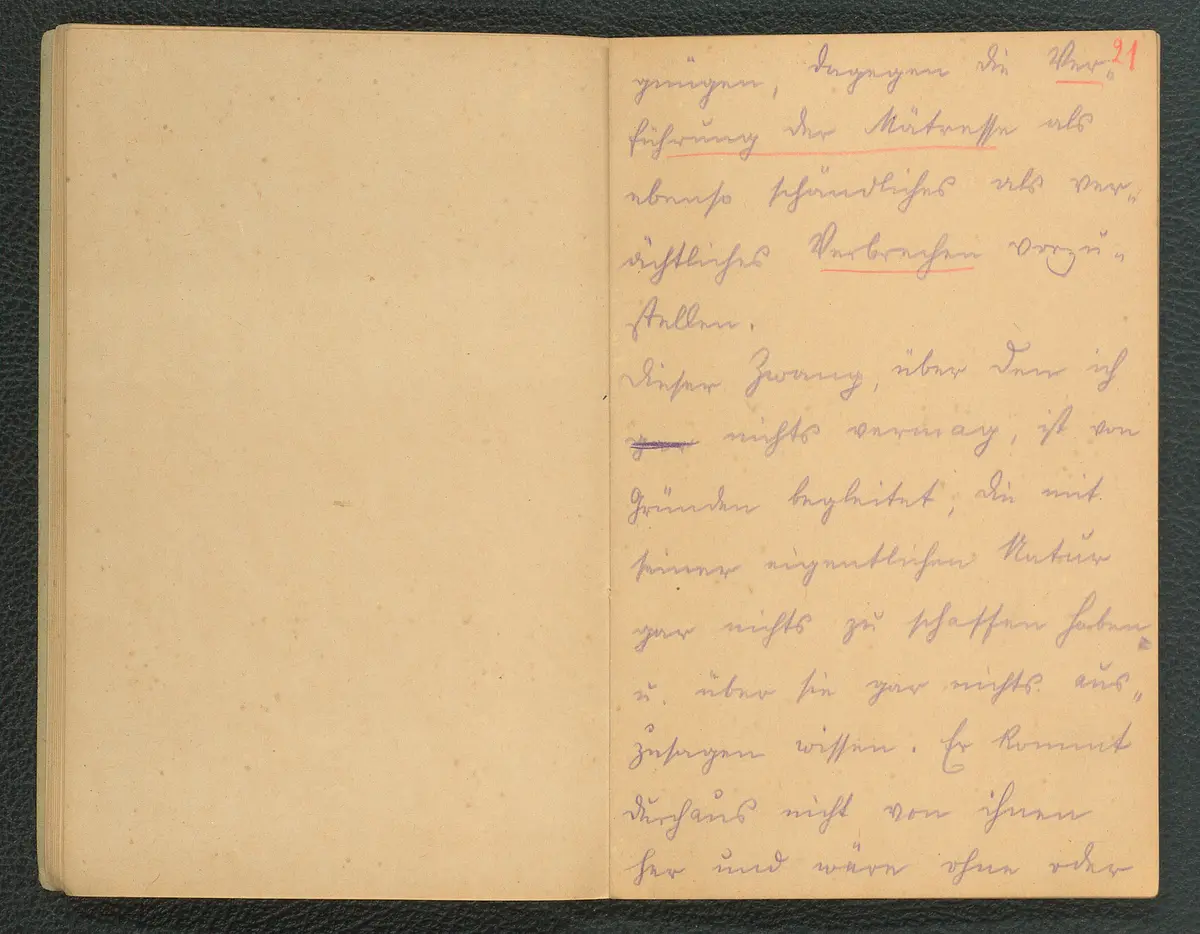 21
gnügen, dagegen die Ver-
führung der Mätresse als
ebenso schändliches als ver-
ächtliches Verbrechen vorzu-
stellen.
Dieser Zwang, über den ich
gar nichts vermag, ist von
Gründen begleitet, die mit
seiner eigentlichen Natur
gar nichts zu schaffen haben
u. über sie gar nichts aus-
zusagen wissen. Er kommt
durchaus nicht von ihnen
her und wäre ohne oder